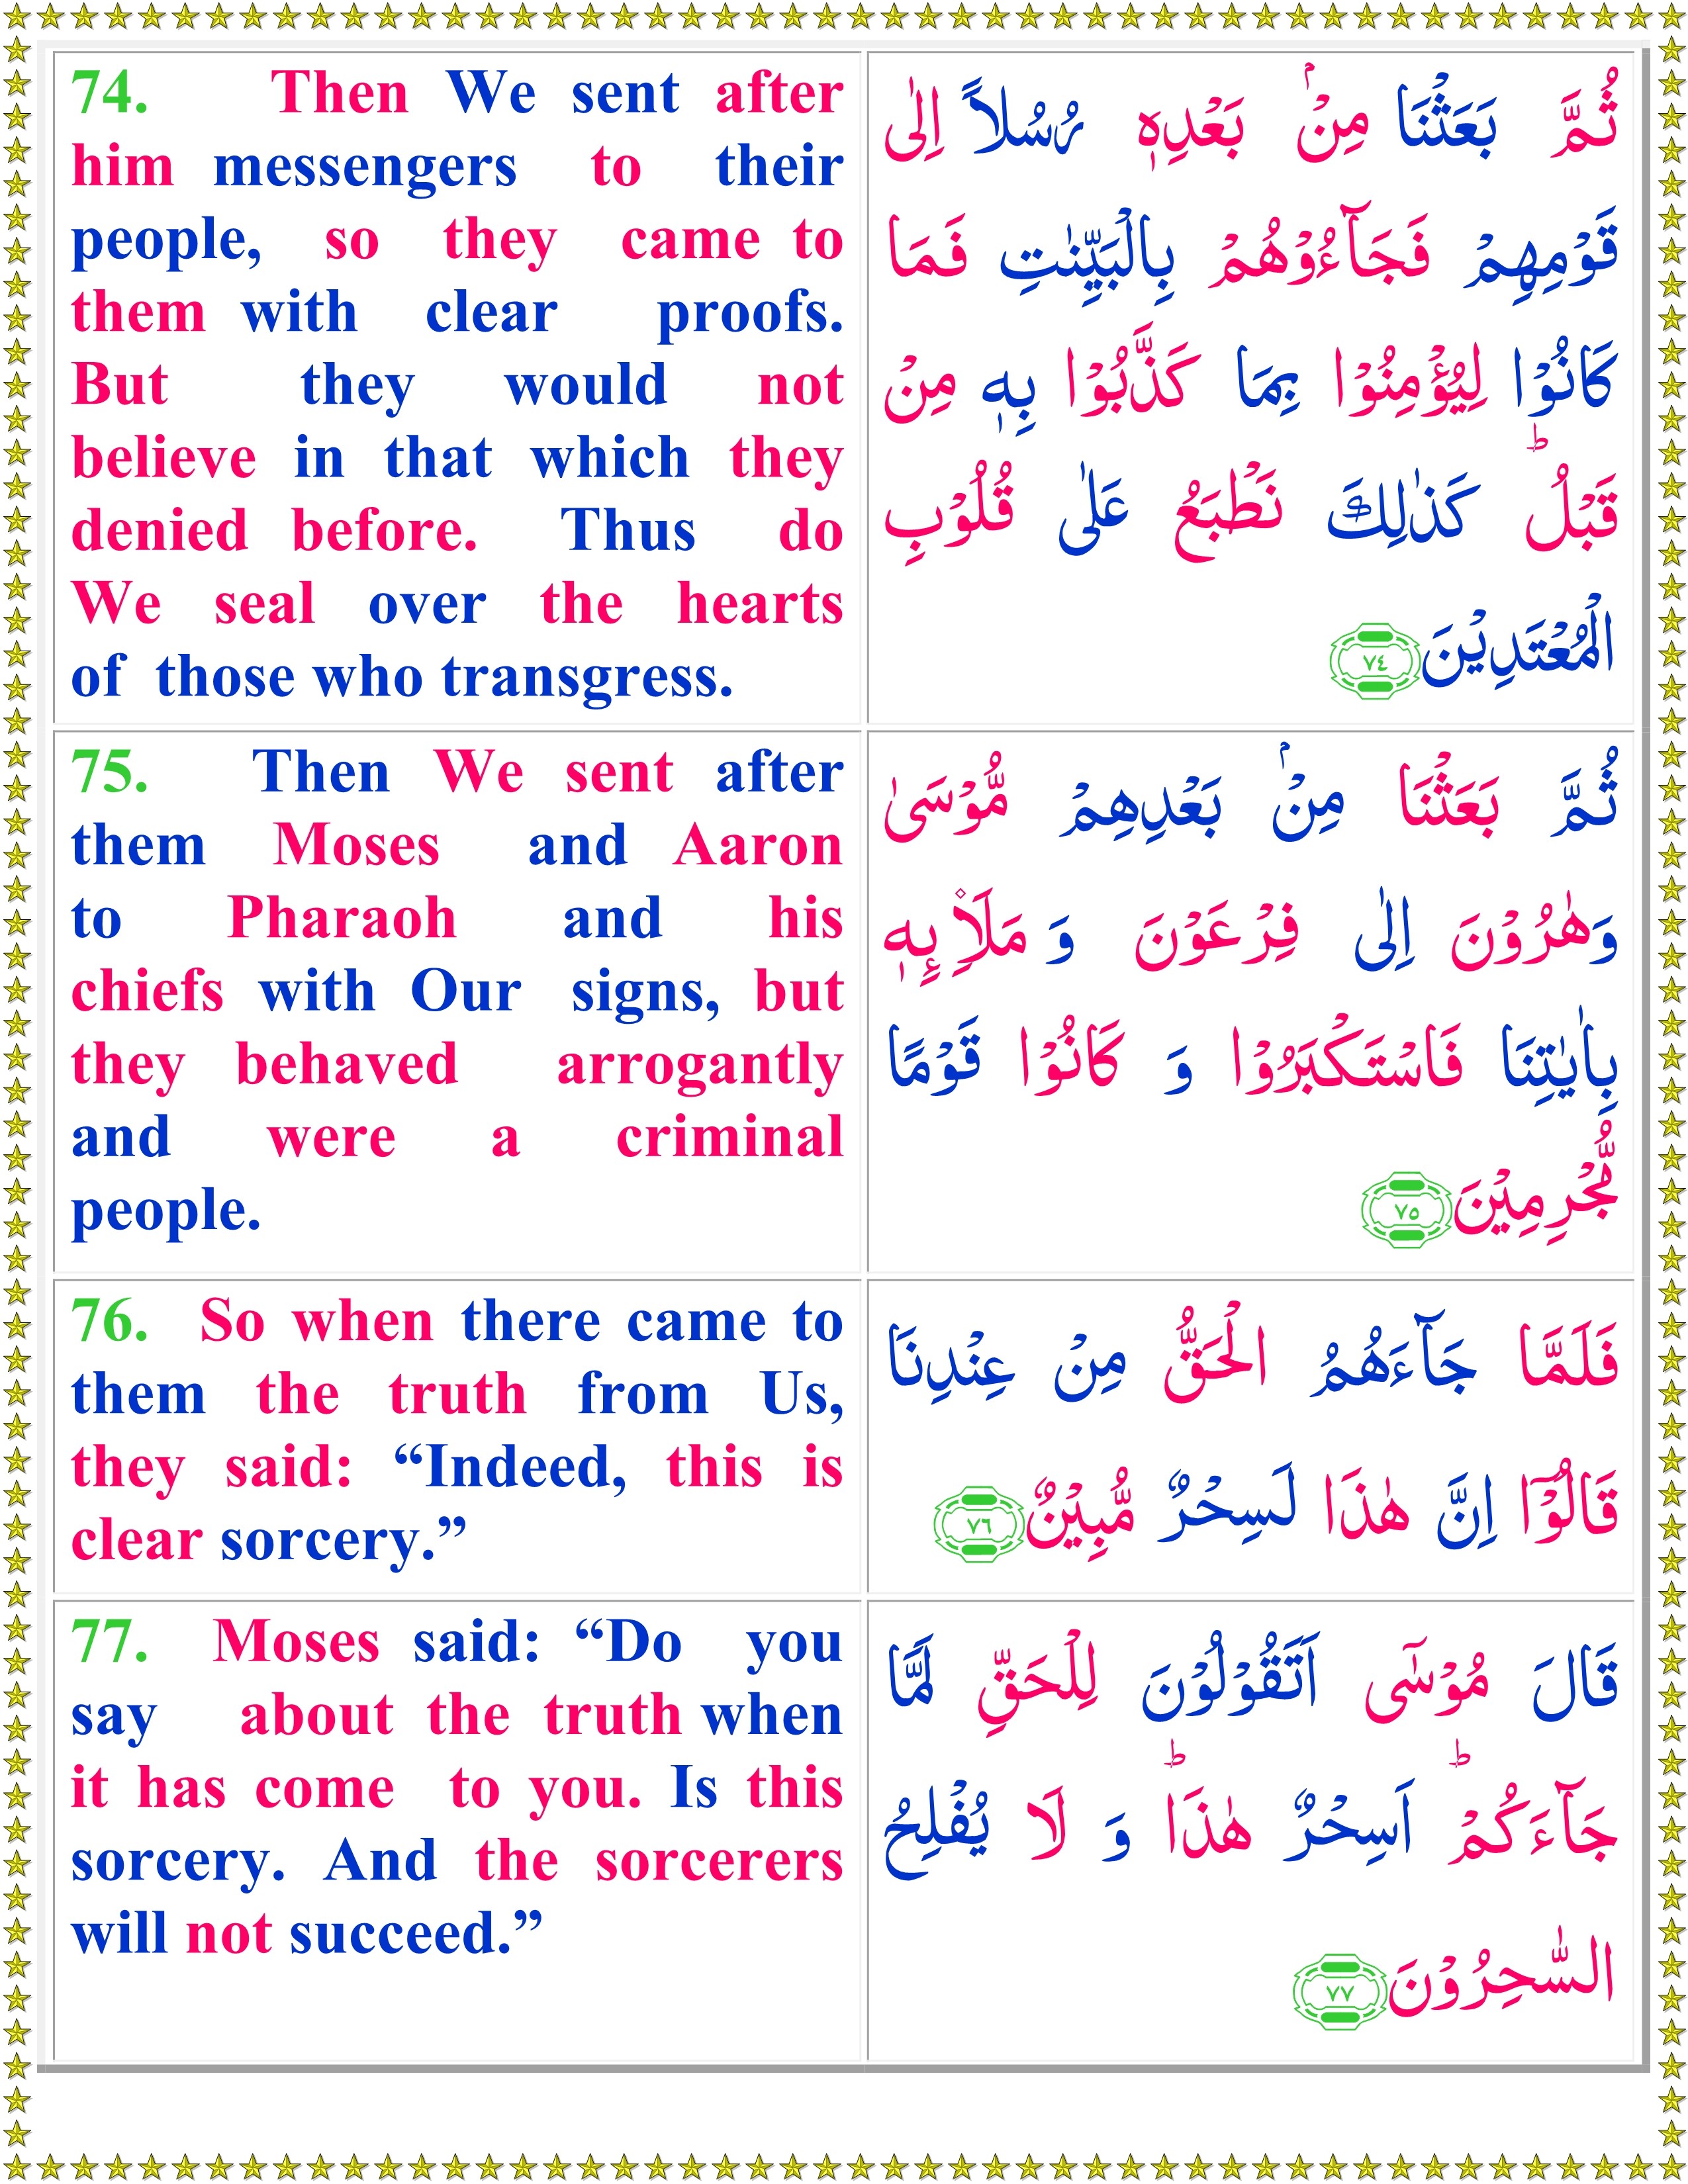 74. Then We sent after
him messengers to their
people, so they came to
them with clear proofs.
But they would not
believe in that which they
denied before. Thus do
We seal over the hearts
of those who transgress.
ثُمَّ بَعَثْنَا مِنْۢ بَعْدِهٖ رُسُلاً اِلٰى
قَوْمِهِمْ فَجَآءُوْهُمْ بِالْبَيِّنٰتِ فَمَا
كَانُوْا لِيُؤْمِنُوْا بِمَا كَذَّبُوْا بِهٖ مِنْ
قَبْلُ ؕ كَذٰلِكَ نَطْبَعُ عَلٰى قُلُوْبِ
الْمُعْتَدِيْنَ ٧٤
75. Then We sent after
them Moses and Aaron
to Pharaoh and his
chiefs with Our signs, but
they behaved arrogantly
and were a criminal
people.
ثُمَّ بَعَثْنَا مِنْۢ بَعْدِهِمْ مُّوْسَىٰ
وَهٰرُوْنَ اِلٰى فِرْعَوْنَ وَ مَلَا۟ئِهٖ
بِاٰيٰتِنَا فَاسْتَكْبَرُوْا وَ كَانُوْا قَوْمًا
مُّجْرِمِيْنَ ٧٥
76. So when there came to
them the truth from Us,
they said: “Indeed, this is
clear sorcery.”
فَلَمَّا جَآءَهُمُ الْحَقُّ مِنْ عِنْدِنَا
قَالُوْۤا اِنَّ هٰذَا لَسِحْرٌ مُّبِيْنٌ ٧٦
77. Moses said: “Do you
say about the truth when
it has come to you. Is this
sorcery. And the sorcerers
will not succeed.”
قَالَ مُوْسٰٓى اَتَقُوْلُوْنَ لِلْحَقِّ لَمَّا
جَآءَكُمْ ؕ اَسِحْرٌ هٰذَا ؕ وَ لَا يُفْلِحُ
السّٰحِرُوْنَ ٧٧